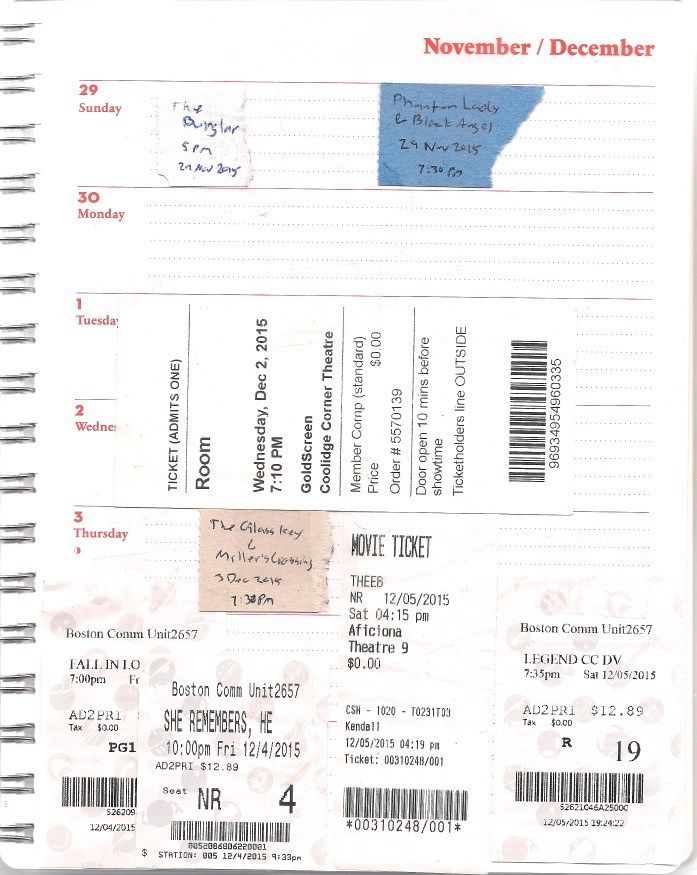 November / December
29
Sunday
The
Burglar
5 pm
29 Nov 2015
Phantom Lady
& Black Angel
29 Nov 2015
7:30 pm
30
Monday
1
Tuesda
2
Wednes
TICKET (ADMITS ONE)
Room
Wednesday, Dec 2, 2015
7:10 PM
GoldScreen
Coolidge Corner Theatre
Member Comp (standard)
Price $0.00
Order # 5570139
Door open 10 mins before
showtime
Ticketholders line OUTSIDE
96934954960335
3
Thursday
The Glass Key
&
Miller's Crossing
3 Dec 2015
7:30 pm
MOVIE TICKET
THEEB
NR 12/05/2015
Sat 04:15 pm
Aficiona
Theatre 9
$0.00
CSH - 1020 - T0231T03
Kendall
12/05/2015 04:19 pm
Ticket: 00310248/001
*00310248/001*
Boston Comm Unit2657
FALL IN LO
7:00pm Fr
AD2PRI
Tax $0.00
PG1
526209
12/04/2015
Boston Comm Unit2657
SHE REMEMBERS, HE
10:00pm Fri 12/4/2015
AD2PRI $12.89
Seat NR 4
0052086806220001
$ STATION: 005 12/4/2015 9:33pm
Boston Comm Unit2657
LEGEND CC DV
7:35pm Sat 12/05/2015
AD2PRI $12.89
Tax $0.00
R 19
52621046A25000
12/05/2015 19:24:22